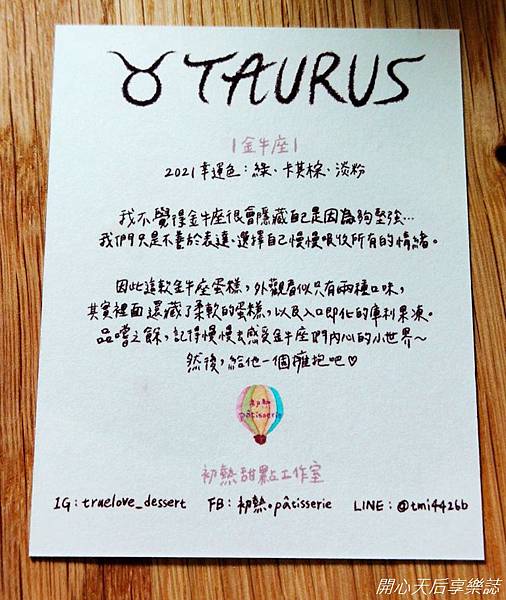 ♉ TAURUS
|金牛座|
2021幸運色：綠、卡其棕、淡粉
我不覺得金牛座很會隱藏自己是因為夠堅強…
我們只是不善於表達、選擇自己慢慢吸收所有的情緒。
因此這款金牛座蛋糕，外觀看似只有兩種口味，
其實裡面還藏了柔軟的蛋糕，以及入口即化的庫利果凍。
品嚐之餘，記得慢慢去感受金牛座們內心的小世界～
然後，給他一個擁抱吧♡
初熱
pâtisserie
初熱甜點工作室
IG：truelove_dessert FB：初熱。pâtisserie LINE：@tmi4426b
開心天后享樂誌